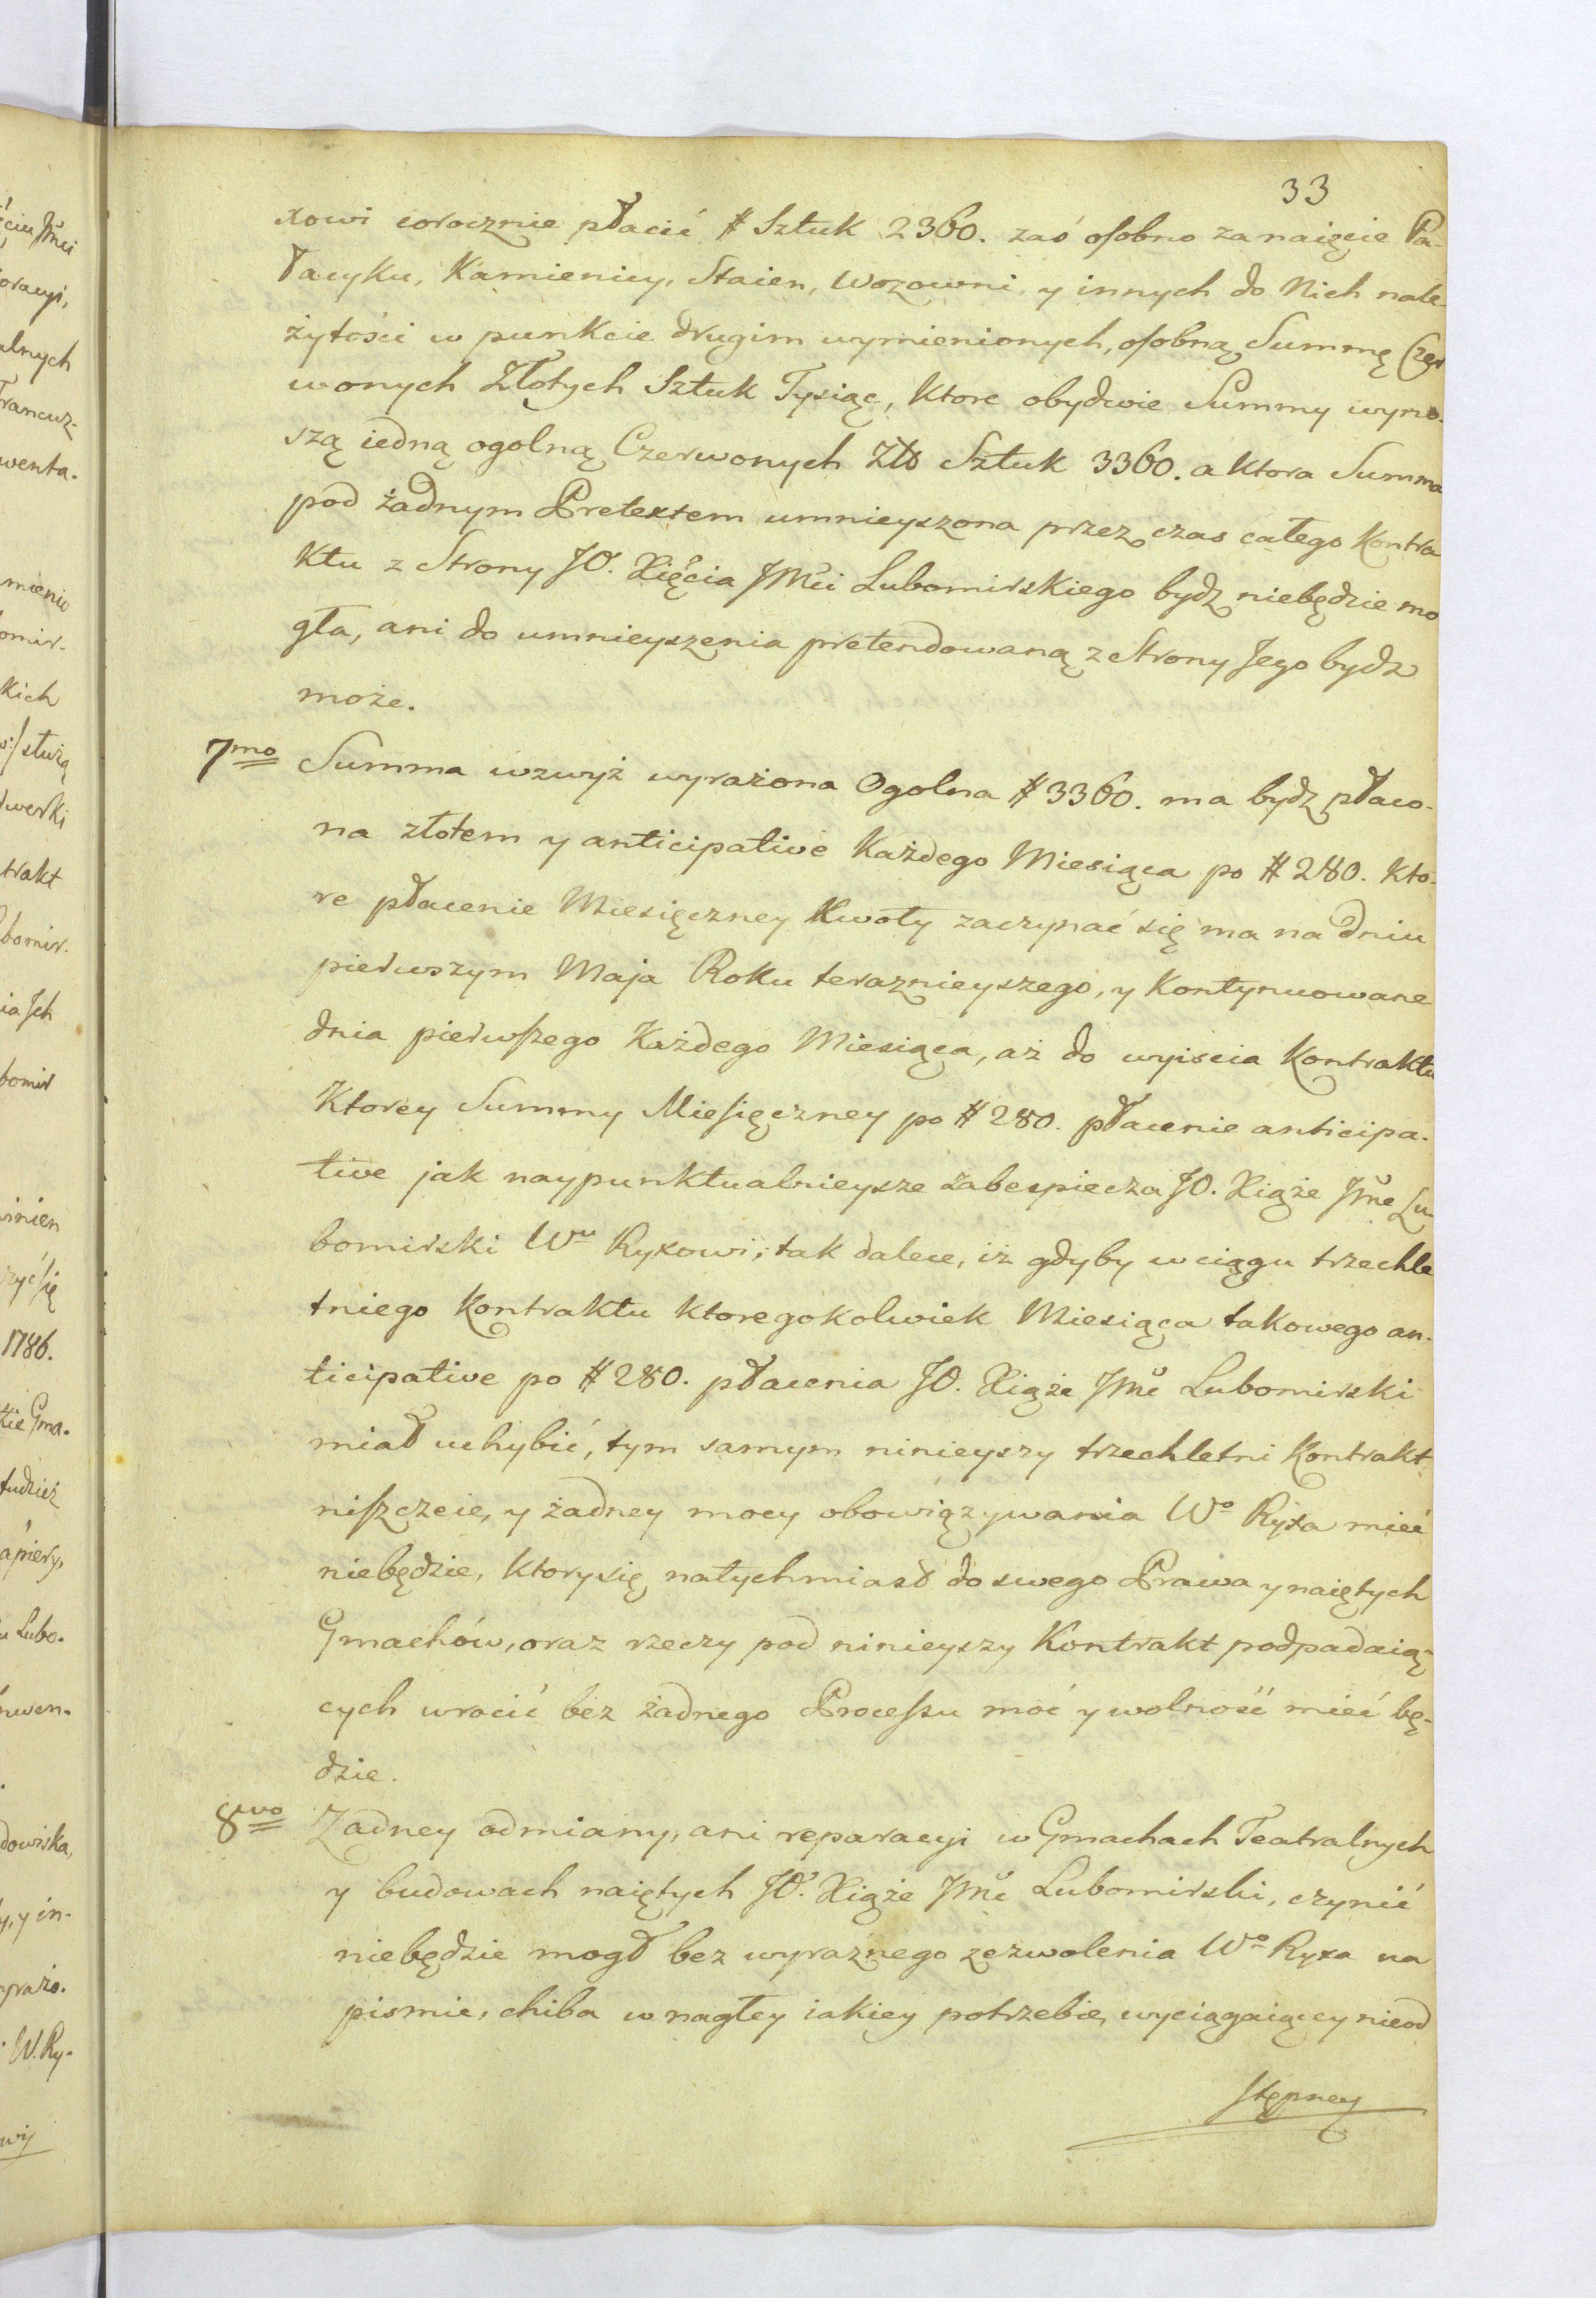 33
xowi corocznie płacić # Sztuk 2360. zaś osobno za naięcie Pa-
łacyku, Kamienicy, Staien, Wozowni y innych do Nich nale
żytości w punkcie drugim wymienionych, osobną Summę Czer
wonych Złotych Sztuk Tysiąc, Ktore obydwie Summy wyno-
szą iedną ogolną Czerwonych Złł Sztuk 3360. a Ktora Summa
pod żadnym Pretextem umnieyszona przez czas całego Kontra
Ktu z Strony JO. Xięcia JMci Lubomirskiego bydz niebędzie mo
gła, ani do umnieyszenia pretendowaną z Strony Jego bydz
może.
7mo Summa wzwyż wyrażona Ogolna # 3360. ma bydz płaco-
na złotem y anticipative Każdego Miesiąca po # 280. Kto-
re płacenie Miesięczney Kwoty zaczynać się ma na dniu
pierwszym Maja Roku teraznieyszego, y Kontynuowane
dnia pierwszego Każdego Miesiąca, aż do wyiscia Kontraktu
Ktorey Summy Miesięczney po # 280. płacenie anticipa-
tive jak naypunktualnieysze zabespiecza JO. Xiąże JMć Lu
bomirski Wu Ryxowi, tak dalece, iż gdyby w ciągu trzechle
tniego Kontraktu Ktoregokolwiek Miesiąca takowego an-
ticipative po # 280. płacenia JO. Xiąże JMć Lubomirski
miał uchybić, tym samym ninieyszy trzechletni Kontrakt
niszczeie, y żadney mocy obowiązywania Wo Ryxa mieć
niebędzie, Ktory się natychmiast do swego Prawa y naiętych
Gmachów, oraz rzeczy pod ninieyszy Kontrakt podpadaią-
cych wrocić bez żadnego Processu moć y wolność mieć bę-
dzie.
8vo Zadney odmiany, ani reparacyi w Gmachach Teatralnych
y budowach naiętych JO. Xiąże JMć Lubomirski, czynić
niebędzie mogł bez wyraznego zezwolenia Wo Ryxa na
pismie, chiba w nagłey iakiey potrzebie, wyciągaiącey nieod
stępney